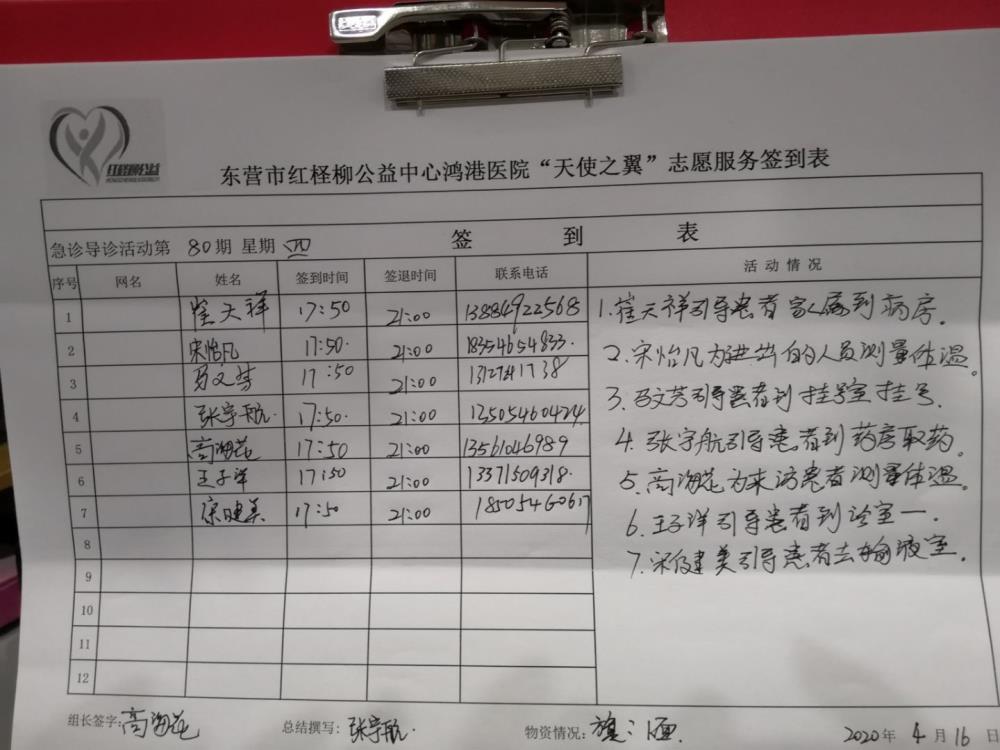 红柽柳公益
东营市红柽柳公益中心鸿港医院“天使之翼”志愿服务签到表
签 到 表
急诊导诊活动第 80期 星期 四
序号 网名 姓名 签到时间 签退时间 联系电话 活动情况
1 崔天祥 17:50 21:00 13884922568
2 宋怡凡 17:50. 21:00 18554654833.
3 马文芳 17:50 21:00
4 张宇航 17:50. 21:00 13505460424
5 高海花 17:50 21:00 13561046989
6 王子洋 17:50 21:00 13371509318.
7 17:50 21:00 18505460617
8
9
10
11
12
1.崔天祥引导患者家属到病房.
2.宋怡凡为进出的人员测量体温。
3.马文芳引导患者到挂号室挂号.
4.张宇航引导患者到药房取药.
5.高海花为来访患者测量体温。
6.王子洋引导患者到诊室一.
7. 健美引导患者去输液室.
组长签字:高海花 总结撰写:张宇航. 物资情况:旗:1面.
2020年 4月16日